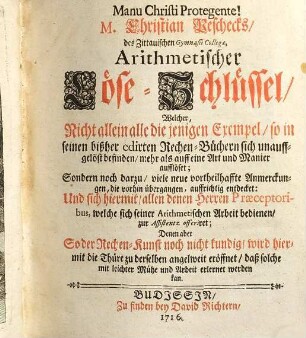 Manu Christi Protegente!
M. Christian Peschecks/
des Zittauischen Gymnasii Collegæ,
Arithmetischer
Löse-Schlüssel/
Welcher,
Nicht allein alle die jenigen Exempel/ so in
seinen bißher edirten Rechen-Büchern sich unauff-
gelöst befinden/ mehr als auff eine Art und Manier
aufflöset;
Sondern noch darzu/ viele neue vortheilhaffte Anmerckun-
gen, die vorhin übergangen, auffrichtig entdecket:
Und sich hiermit/ allen denen Herren Præceptori-
bus, welche sich seiner Arithmetischen Arbeit bedienen/
zur Assistence offeriret;
Denen aber
So der Rechen-Kunst noch nicht kundig/ wird hier/
mit die Thüre zu derselben angelweit eröffnet/ daß solche
mit leichter Mühe und Arbeit erlernet werden
kan.
BUDISSIN/
Zu finden bey David Richtern/
1716.